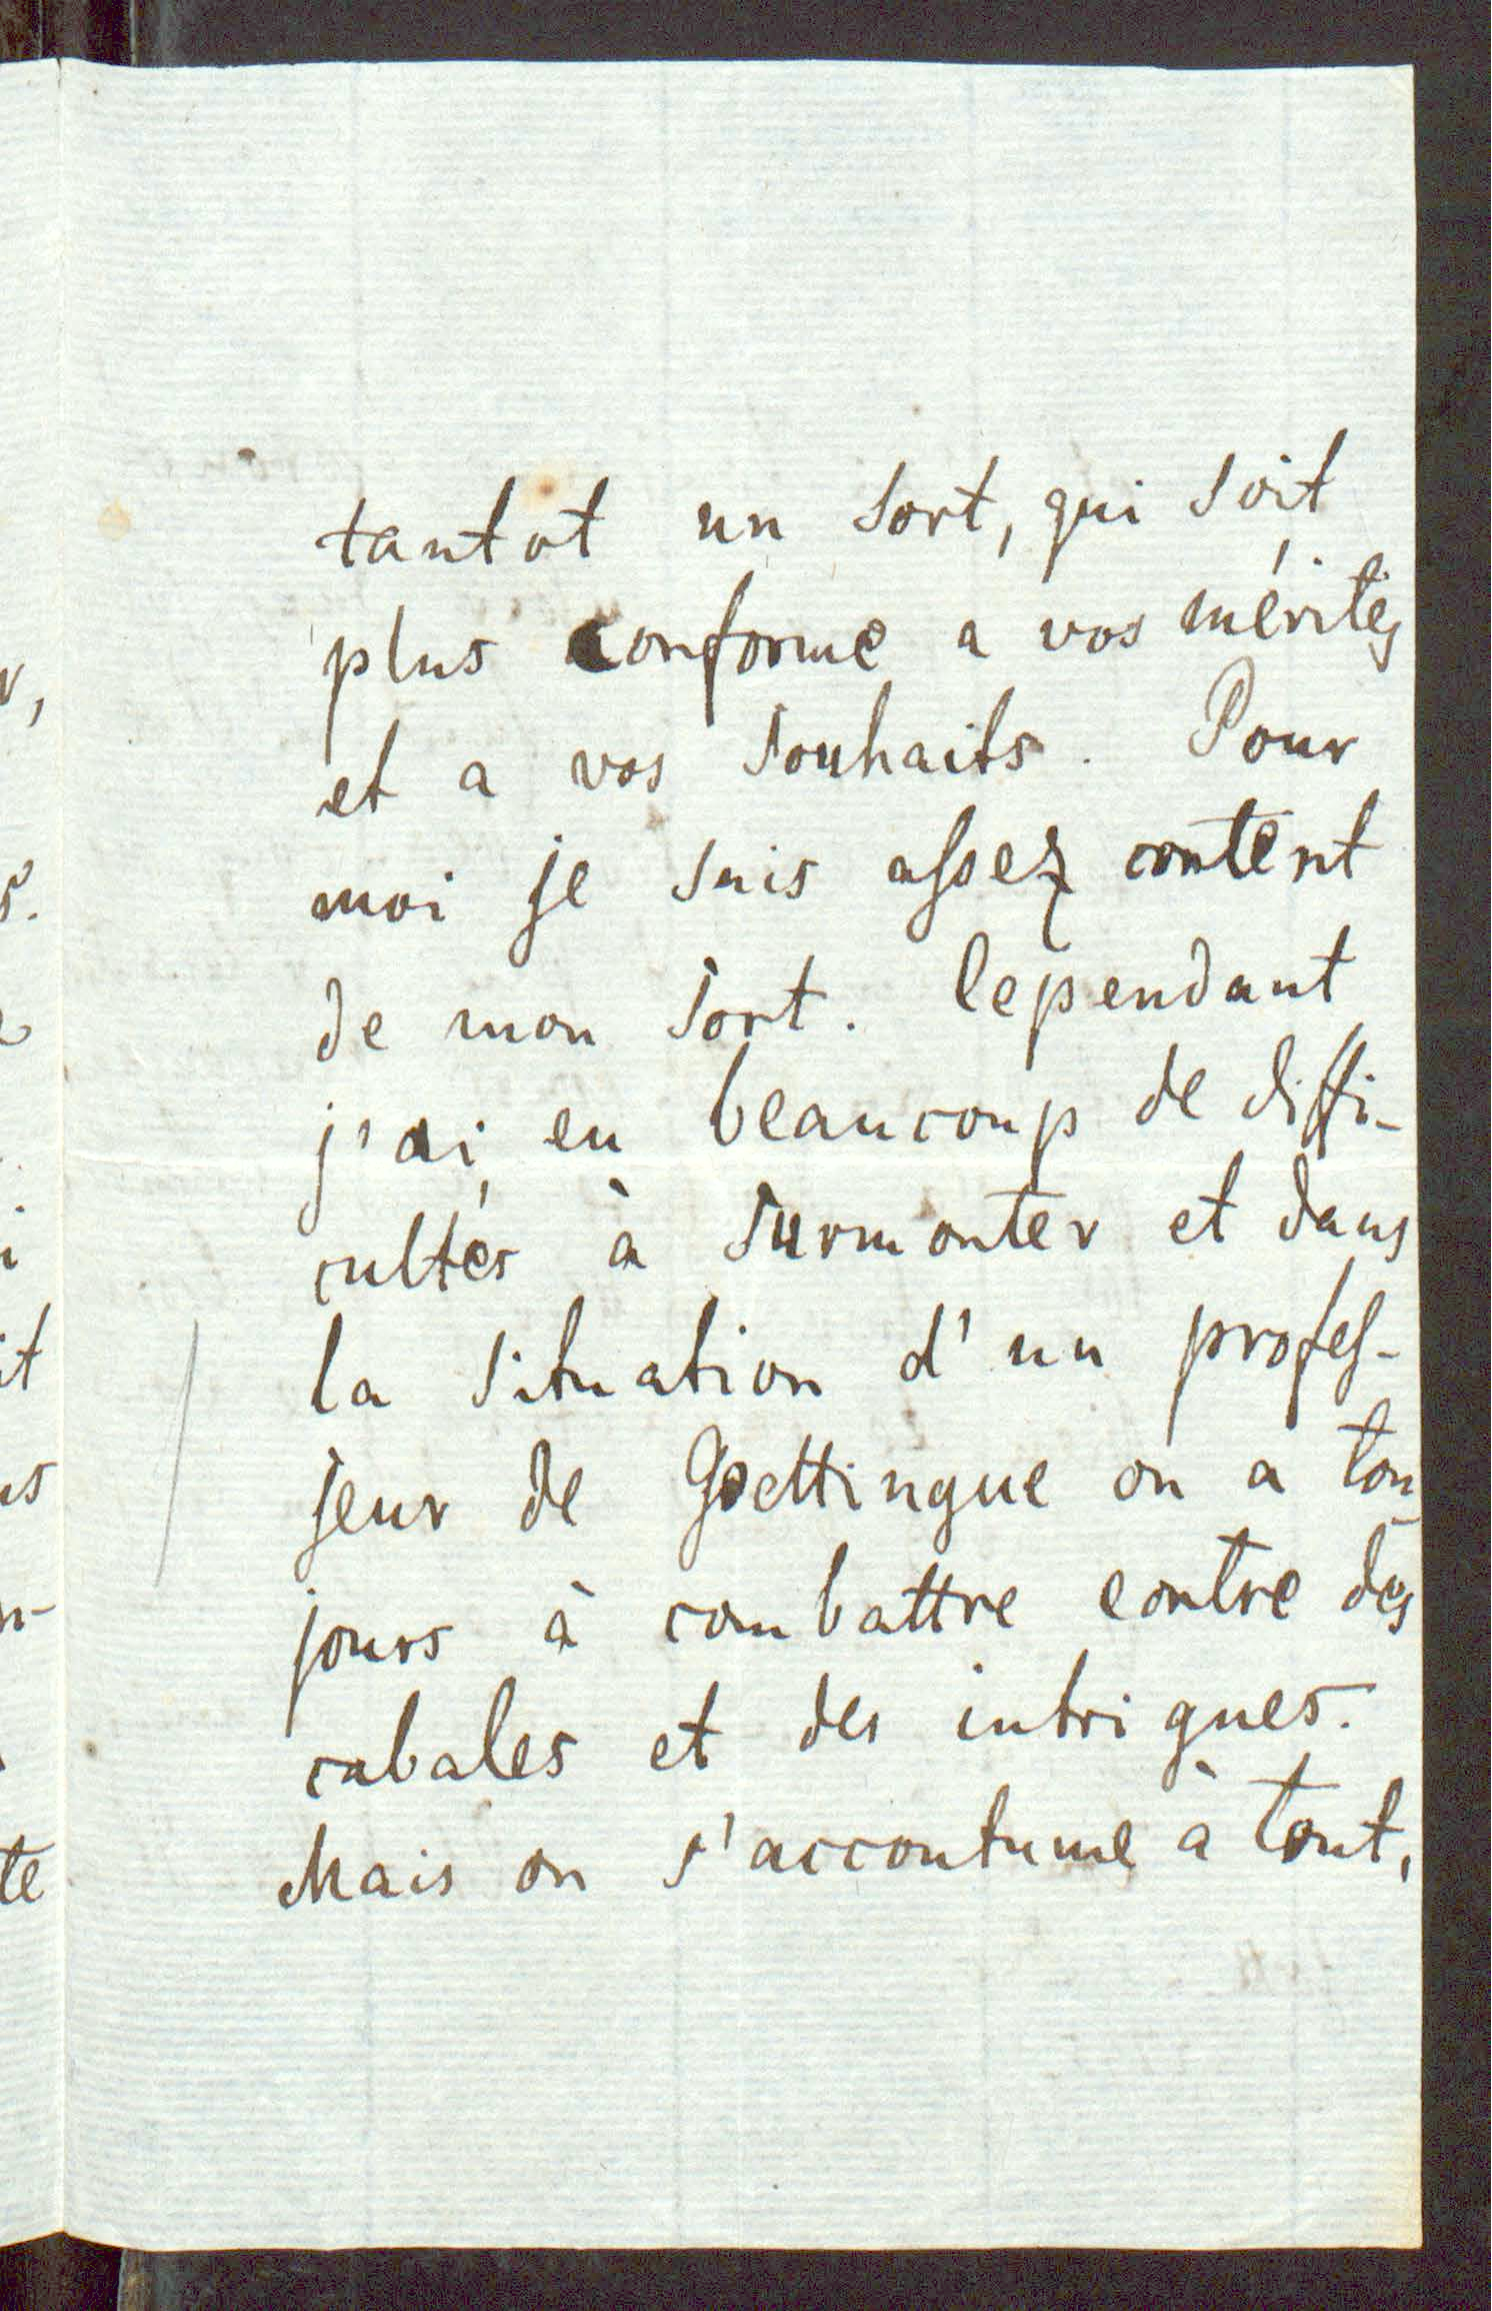 tantot un sort, qui soit
plus conforme a vos mérites
et a vos souhaits. Pour
moi je suis assez content
de mon sort. Cependant
j'ai eu beaucoup de diffi-
cultés à surmonter et dans
la situation d'un profes-
seur de Goettingue on a tou-
jours à combattre contre des
cabales et des intrigues.
Mais on s'accoutume à tout,